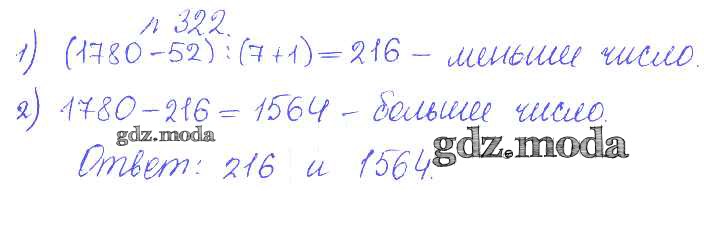 № 322.
1) (1780-52):(7+1)=216 - меньшее число.
2) 1780-216=1564 - большее число.
gdz.moda
gdz.moda
Ответ: 216 и 1564.